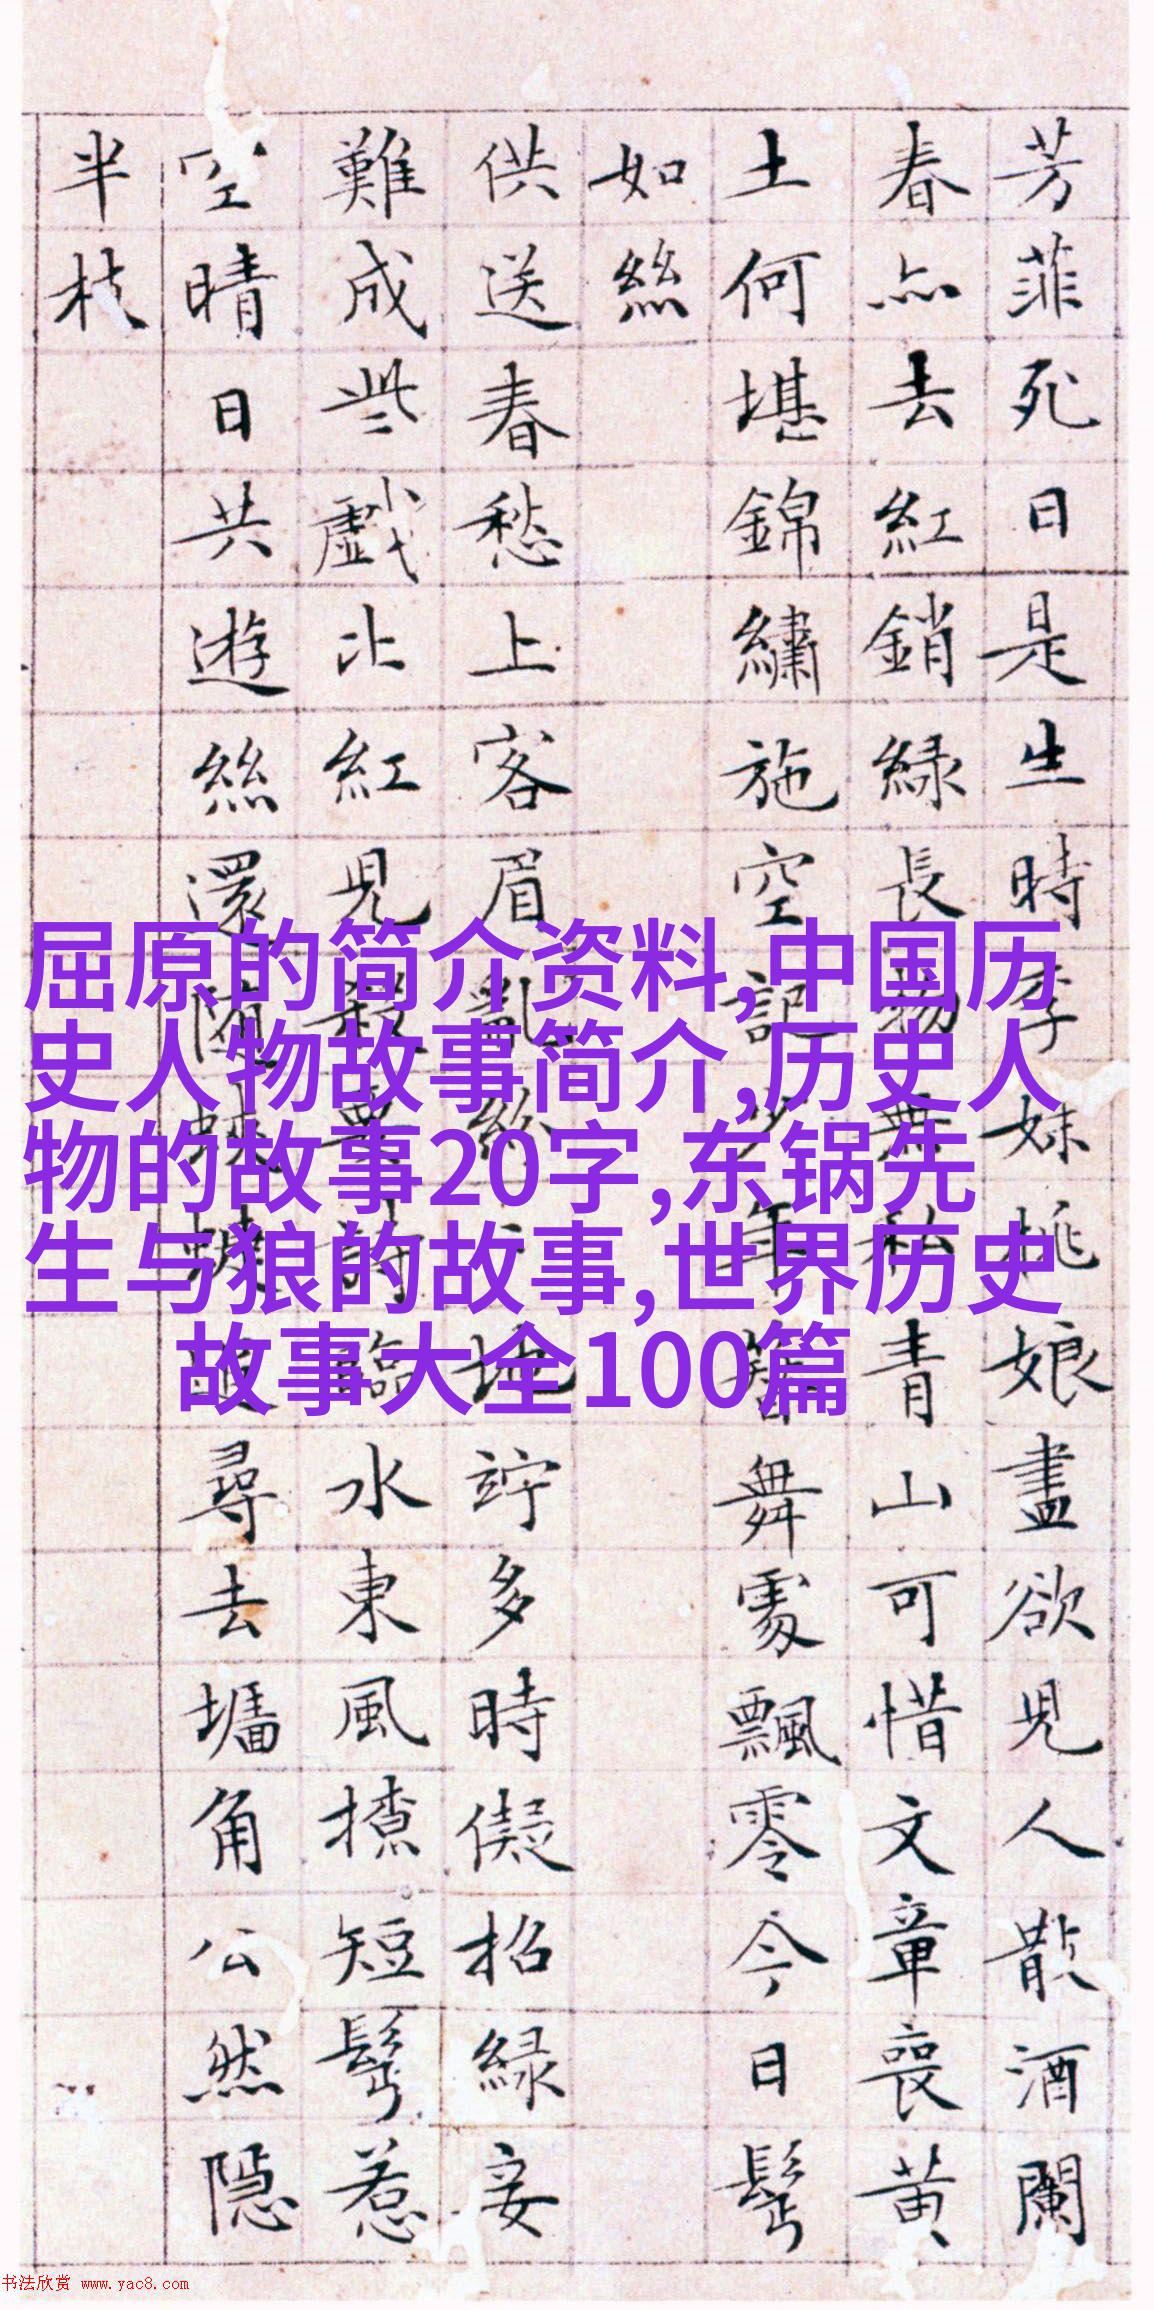 芳菲死日是生時李妹桃娘盡欲兒人散酒闌
春亦去紅銷綠長物無私青山可惜文章喪黃
土何堪錦繡施空記少年簪舞處飄零今日鬢
如絲
供送春愁上客眉亂紛紛地竚多時儗招綠妾
難成些戲比紅兒殺要詩臨水東風撩短鬢惹
空晴日共遊絲還隨蛺蝶追尋去墻角公然隱
半枝
屈原的简介资料,中国历
史人物故事简介,历史人
物的故事20字,东锅先
生与狼的故事,世界历史
故事大全100篇
书法欣赏 www.yac8.com